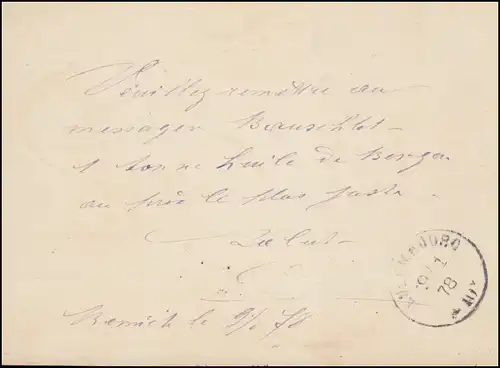 Veuillez remettre au
messager Bauschlet
1 tonne huile de Bergen
au prix le plus juste
Salut
Remich le 9/1 78
LUXEMBOURG
9/1
78